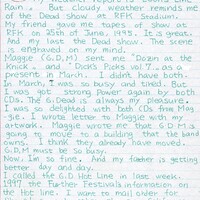 Rain". But cloudy weather reminds me
of the Dead show at RFK Stadium.
My friend gave me tapes of show at
RFK on 25th of June, 1995. It is great.
And my last the Dead show. The scene
is engraved on my mind.
Maggie (G.D.M) sent me "Dozin at the
Knick" and "Dick's Picks vol 7" as a
present in March. I didn't have both.
In March, I was so busy and tired. But
I was got strong power again by both
CDs. The G. Dead is always my pleasure.
I was so delighted with both CDs from Mag-
gie. I wrote letter to Maggie with my
artwork. Maggie wrote me that G D M is
going to move to a building that the band
owns. I think they already have moved.
G.D.M must be so busy.
Now, I'm so fine. And my father is getting
better day and day.
I called the G.D Hot Line in last week.
1997 the Further Festival's information on
the Hot line. I want to mail order for